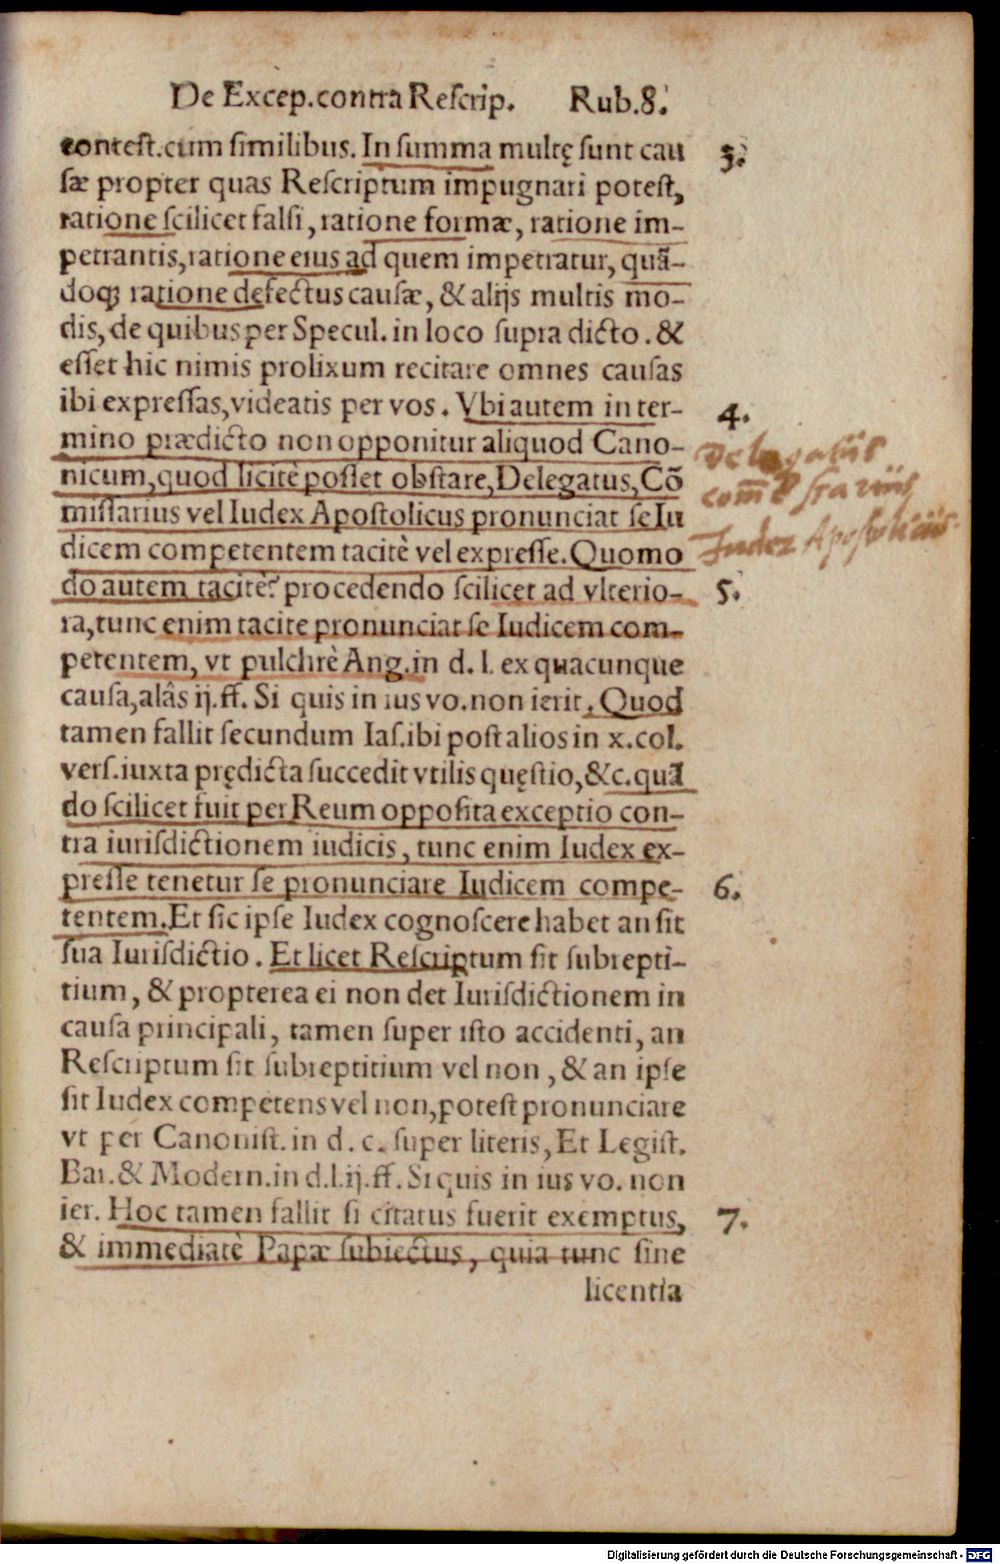 De Excep.contra Rescrip. Rub.8.
contest.cum similibus. In summa multę sunt cau 3.
sæ propter quas Rescriptum impugnari potest,
ratione scilicet falsi, ratione formæ, ratione im-
petrantis, ratione eius ad quem impetratur, quã-
doqꝫ ratione defectus causæ, & alijs multis mo-
dis, de quibus per Specul. in loco supra dicto. &
esset hic nimis prolixum recitare omnes causas
ibi expressas, videatis per vos. Vbi autem in ter- 4.
mino prædicto non opponitur aliquod Cano-
nicum, quod licitè posset obstare, Delegatus, Cõ
missarius vel Iudex Apostolicus pronunciat se Iu
dicem competentem tacitè vel expresse. Quomo
do autem tacitè? procedendo scilicet ad vlterio- 5.
ra, tunc enim tacite pronunciat se Iudicem com-
petentem, vt pulchrè Ang. in d. l. ex quacunque
causa, alâs ij. ff. Si quis in ius vo. non ierit. Quod
tamen fallit secundum Ias. ibi post alios in x. col.
vers. iuxta prędicta succedit vtilis quęstio, &c. quã
do scilicet fuit per Reum opposita exceptio con-
tra iurisdictionem iudicis, tunc enim Iudex ex-
presse tenetur se pronunciare Iudicem compe- 6.
tentem. Et sic ipse Iudex cognoscere habet an sit
sua Iurisdictio. Et licet Rescriptum sit subrepti-
tium, & propterea ei non det Iurisdictionem in
causa principali, tamen super isto accidenti, an
Rescriptum sit subreptitium vel non, & an ipse
sit Iudex competens vel non, potest pronunciare
vt per Canonist. in d. c. super literis, Et Legist.
Bar. & Modern. in d.l.ij. ff. Si quis in ius vo. non
ier. Hoc tamen fallit si citatus fuerit exemptus, 7.
& immediatè Papæ subiectus, quia tunc sine
licentia
Delegatus
Index Apostolicus
Digitalisierung gefördert durch die Deutsche Forschungsgemeinschaft - DFG